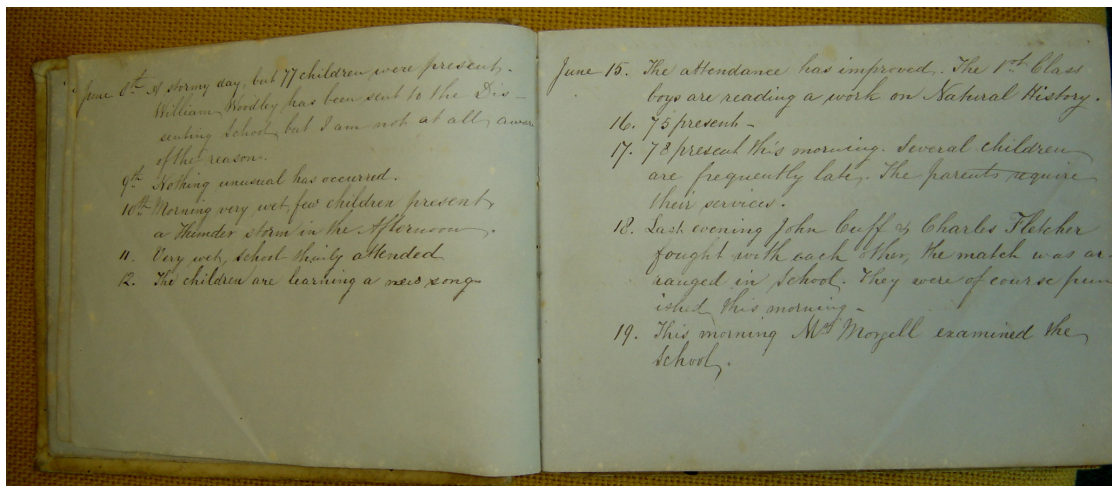 June 8th A stormy day, but 77 children were present.
William Woodley has been sent to the Dis-
senting School, but I am not at all aware
of the reason.
9th Nothing unusual has occurred.
10th Morning very wet, few children present,
a Thunder storm in the Afternoon.
11. Very wet, School thinly attended
12. The children are learning a new song
June 15. The attendance has improved. The 1st Class
boys are reading a work on Natural History.
16. 75 present-
17. 78 present this morning. Several children
are frequently late. The parents require
their services.
18. Last evening John Cuff & Charles Fletcher
fought with each other, the match was ar-
ranged in School. They were of course pun
ished this morning-
19. This morning Morzell examined the
School.